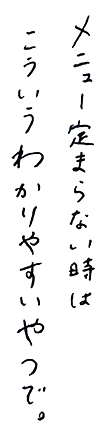 メニュー定まらない時は
こういうわかりやすいやつで。